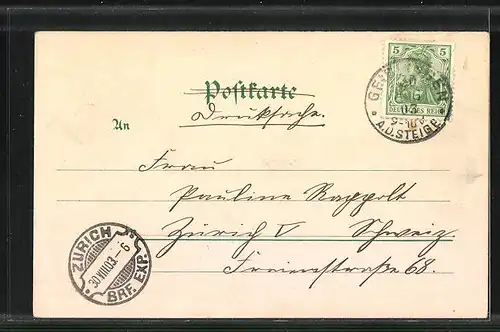 5
DEUTSCHES REICH
03
A.D. STEIGE
Postkarte
Drucksache.
An
Frau
Pauline Rappolt
Zürich V Schweiz.
Freiestraße 68.
ZÜRICH
30.VIII.03.–6
BRF. EXP.